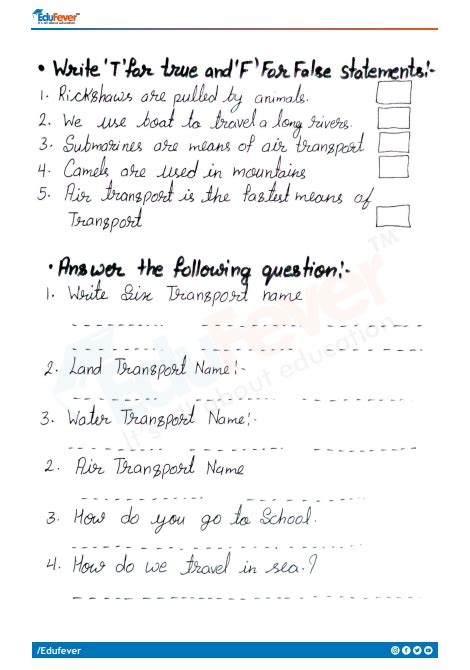 EduFever
It's all about education
• Write 'T' for true and 'F' For False statements:-
1. Rickshaws are pulled by animals.
2. We use boat to travel a long rivers.
3. Submarines are means of air transport
4. Camels are used in mountains
5. Air transport is the fastest means of
Transport
• Answer the following question:-
1. Write Six Transport name
2. Land Transport Name:-
3. Water Transport Name:-
2. Air Transport Name
3. How do you go to School.
4. How do we travel in sea.?
EduFever TM
It's all about education
/Edufever